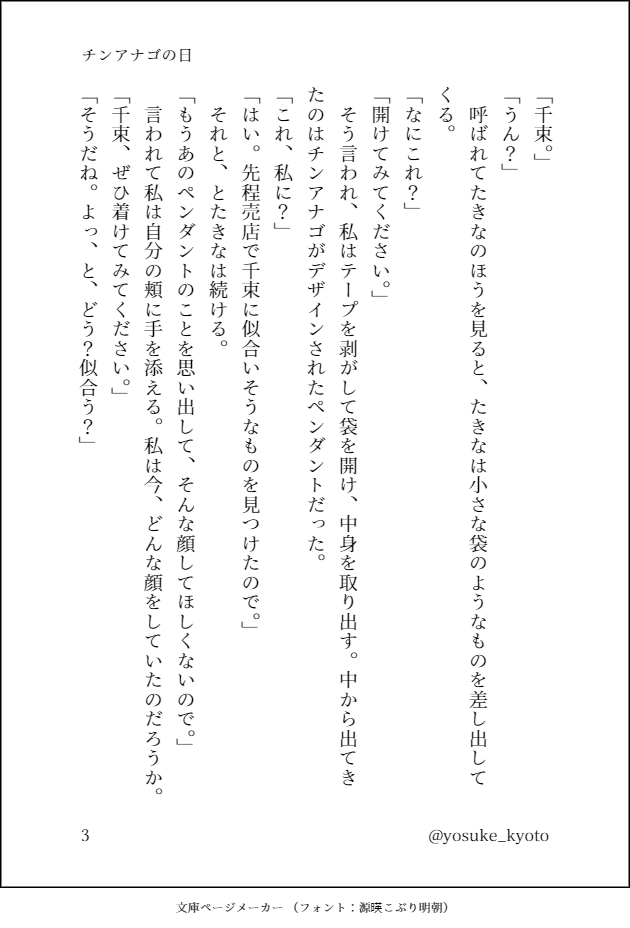 チンアナゴの日
「千束。」
「うん？」
　呼ばれてたきなのほうを見ると、たきなは小さな袋のようなものを差し出して
くる。
「なにこれ？」
「開けてみてください。」
　そう言われ、私はテープを剥がして袋を開け、中身を取り出す。中から出てき
たのはチンアナゴがデザインされたペンダントだった。
「これ、私に？」
「はい。先程売店で千束に似合いそうなものを見つけたので。」
　それと、とたきなは続ける。
「もうあのペンダントのことを思い出して、そんな顔してほしくないので。」
　言われて私は自分の頬に手を添える。私は今、どんな顔をしていたのだろうか。
「千束、ぜひ着けてみてください。」
「そうだね。よっ、と、どう？似合う？」
3
@yosuke_kyoto
文庫ページメーカー （フォント：源暎こぶり明朝）